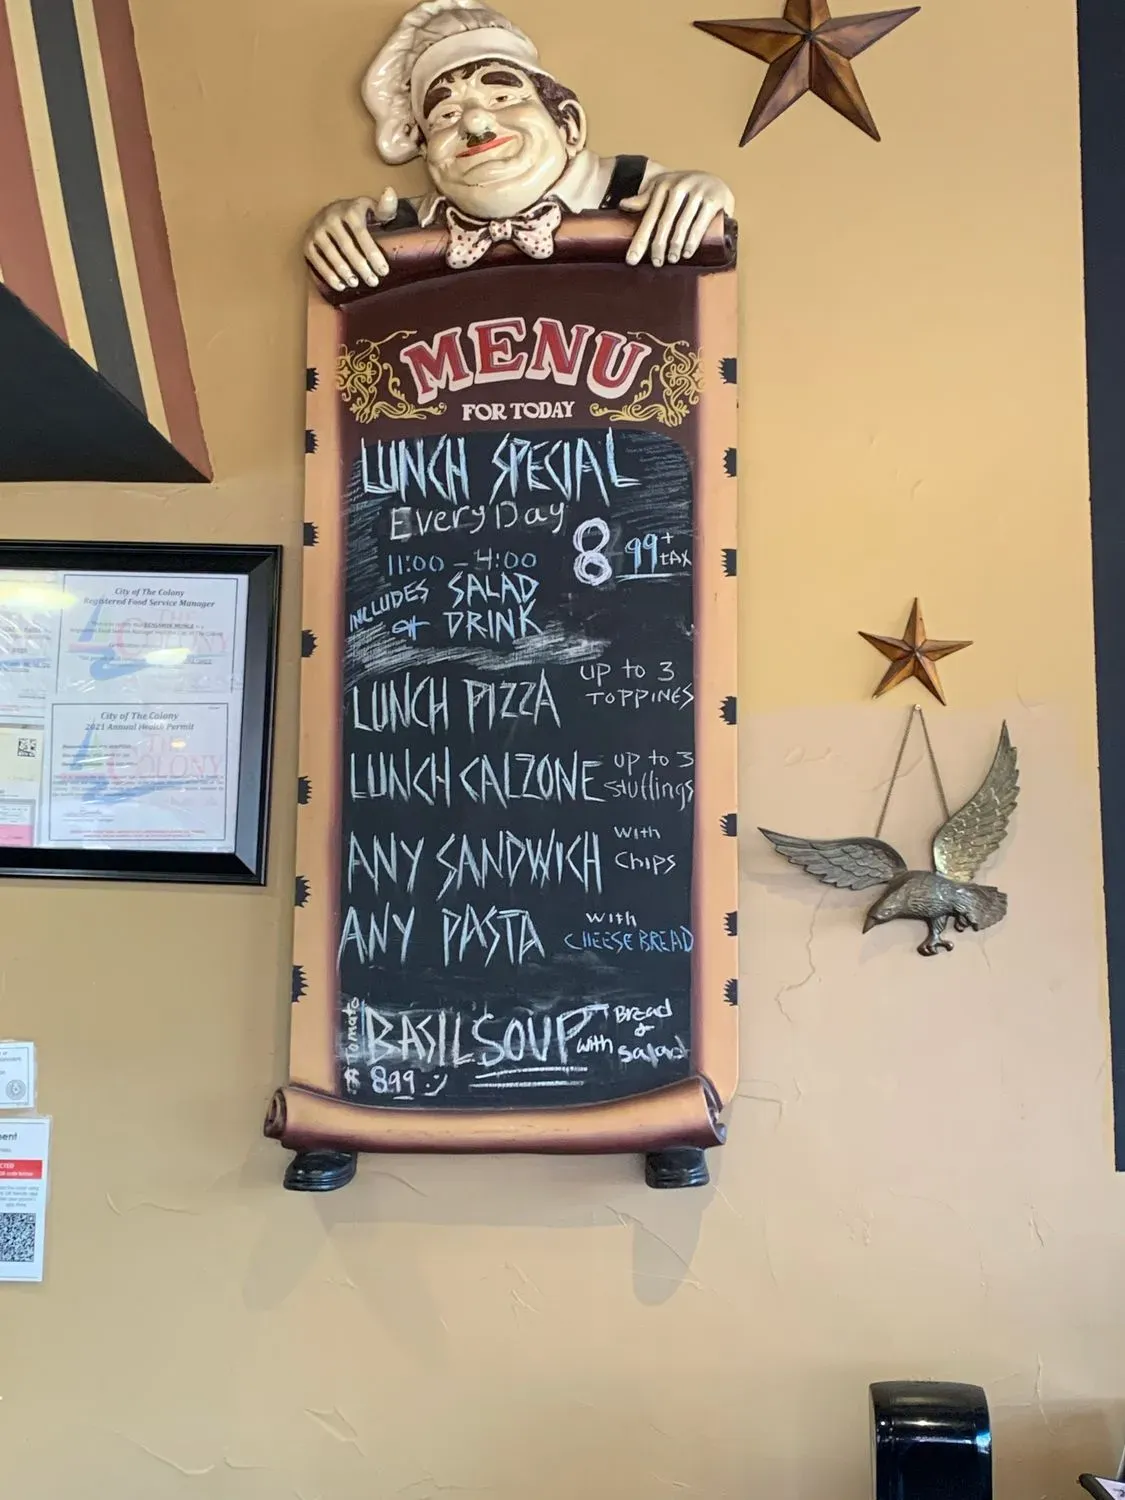 MENU
FOR TODAY
LUNCH SPECIAL
EveryDay
11:00 - 4:00
8 99 + tAX
INCLUDES SALAD
or DRINK
LUNCH PIZZA up to 3 TOPPINES
LUNCH CALZONE up to 3 stuffings
ANY SANDWICH with Chips
ANY PASTA with CHEESE BREAD
tomato BASIL SOUP with Bread & Salad
$ 8.99 :)
City of The Colony
Registered Food Service Manager
City of The Colony
2021 Annual Health Permit
THE COLONY